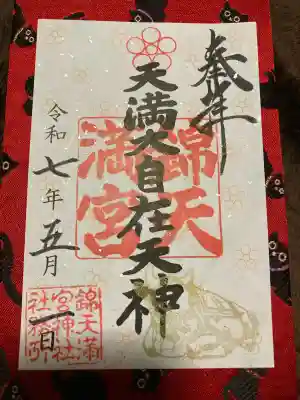 奉拝
天満大自在天神
錦天
満宮
令和七年五月一日
錦天満
宮神社
社務所